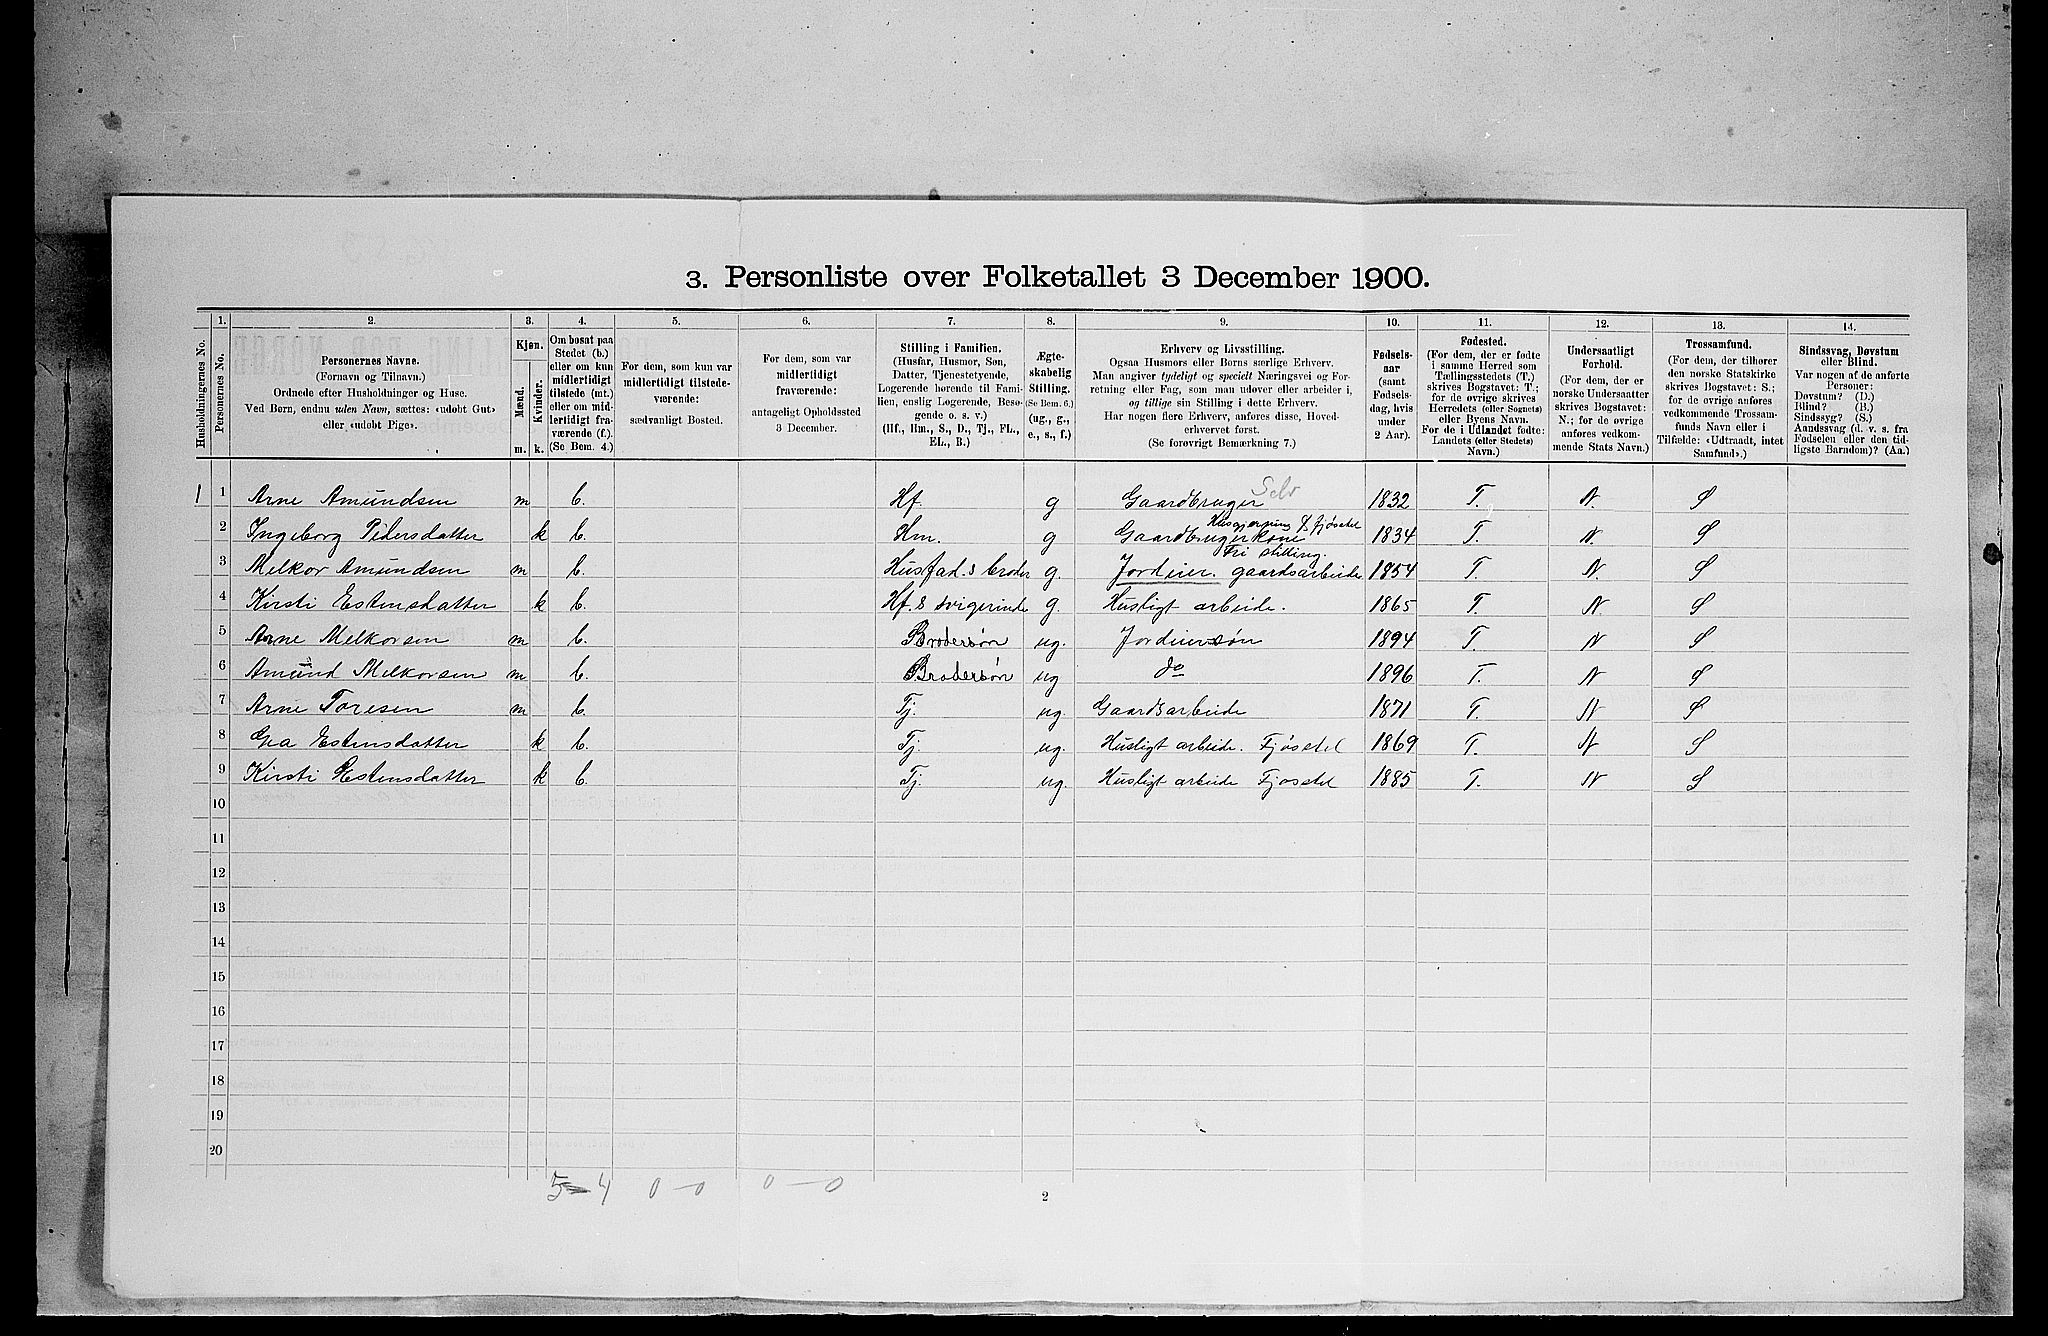 3. Personliste over Folketallet 3 December 1900.
Husholdningernes No.
1.
Personernes No.
2.
Personernes Navne.
(Fornavn og Tilnavn.)
Ordnede efter Husholdninger og Huse.
Ved Børn, endnu uden Navn, sættes: «udøbt Gut»
eller «udøbt Pige».
3.
Kjøn.
Mænd.
Kvinder.
m. k.
4.
Om bosat paa
Stedet (b.)
eller om kun
midlertidigt
tilstede (mt.)
eller om mid-
lertidigt fra-
værende (f.).
(Se Bem. 4.)
5.
For dem, som kun var
midlertidigt tilstede-
værende:
sædvanligt Bosted.
6.
For dem, som var
midlertidigt
fraværende:
antageligt Opholdssted
3 December.
7.
Stilling i Familien.
(Husfar, Husmor, Søn,
Datter, Tjenestetyende,
Logerende hørende til Fami-
lien, enslig Logerende, Besø-
gende o. s. v.)
(Hf., Hm., S., D., Tj., FL.,
EL., B.)
8.
Ægte-
skabelig
Stilling.
(Se Bem. 6.)
(ug., g.,
e., s., f.)
9.
Erhverv og Livsstilling.
Ogsaa Husmors eller Børns særlige Erhverv.
Man angiver tydeligt og specielt Næringsvei og For-
retning eller Fag, som man udøver eller arbeider i,
og tillige sin Stilling i dette Erhverv.
Har nogen flere Erhverv, anføres disse, Hoved-
erhvervet først.
(Se forøvrigt Bemærkning 7.)
10.
Fødsels-
aar
(samt
Fødsels-
dag, hvis
under
2 Aar).
11.
Fødested.
(For dem, der er fødte
i samme Herred som
Tællingsstedets (T.),
skrives Bogstavet: T.;
for de øvrige skrives
Herredets (eller Sognets)
eller Byens Navn.
For de i Udlandet fødte:
Landets (eller Stedets)
Navn.)
12.
Undersaatligt
Forhold.
(For dem, der er
norske Undersaatter
skrives Bogstavet:
N.; for de øvrige
anføres vedkom-
mende Stats Navn.)
13.
Trossamfund.
(For dem, der tilhører
den norske Statskirke
skrives Bogstavet: S.;
for de øvrige anføres
vedkommende Trossam-
funds Navn eller i
Tilfælde: «Udtraadt, intet
Samfund».)
14.
Sindssvag, Døvstum
eller Blind.
Var nogen af de anførte
Personer:
Døvstum? (D.)
Blind? (B.)
Sindssyg? (S.)
Aandssvag (d. v. s. fra
Fødselen eller den tid-
ligste Barndom)? (Aa.)
1 1 Arne Amundsen m b. Hf. g Gaardbruger Selv 1832 T. N. S
2 Ingeborg Pedersdatter k b. Hm. g Gaardbrugerkone Husgjerning & fjøsstel 1834 T. N. S
3 Melkor Amundsen m b. Husfad.s broder g. Jordeier. gaardsarbeide Fri stilling. 1854 T. N. S
4 Kirsti Estensdatter k b. Hf.s svigerinde g. Husligt arbeide. 1865 T. N S
5 Arne Melkorsen m b. Brodersøn ug. Jordeiersøn 1894 T. N S
6 Amund Melkorsen m b. Brodersøn ug do 1896 T. N S
7 Arne Toresen m b. Tj. ug. Gaardsarbeide 1871 T. N S
8 Gea Estensdatter k b. Tj. ug. Husligt arbeide. Fjøsstel 1869 T. N S
9 Kirsti Estensdatter k b. Tj. ug. Husligt arbeide Fjøsstel 1885 T. N S
10
11
12
13
14
15
16
17
18
19
20
5-4 0-0 0-0
2